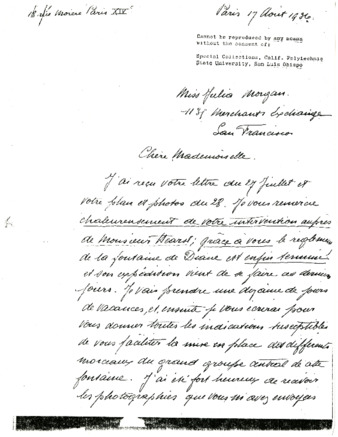 18 rue Moière Paris XVIe
Paris 17 Août 1934
Cannot be reproduced by any means
without the consent of:
Special Collections, Calif. Polytechnic
State University, San Luis Obispo
Miss Julia Morgan.
1135 Merchants Exchange
San Francisco
Chère Mademoiselle.
J'ai reçu votre lettre du 27 Juillet et
votre plan et photos du 28. Je vous remercie
chaleureusement de votre intervention auprès
de Monsieur Hearst; grâce à vous le règlement
de la fontaine de Diane est enfin terminé
et son expédition vient de se faire ces derniers
jours. Je vais prendre une dizaine de jours
de vacances, et ensuite je vous écrirai pour
vous donner toutes les indications susceptibles
de vous faciliter la mise en place des différents
morceaux du grand groupe central de cette
fontaine. J'ai été fort heureux de recevoir
les photographies que vous m'avez envoyées